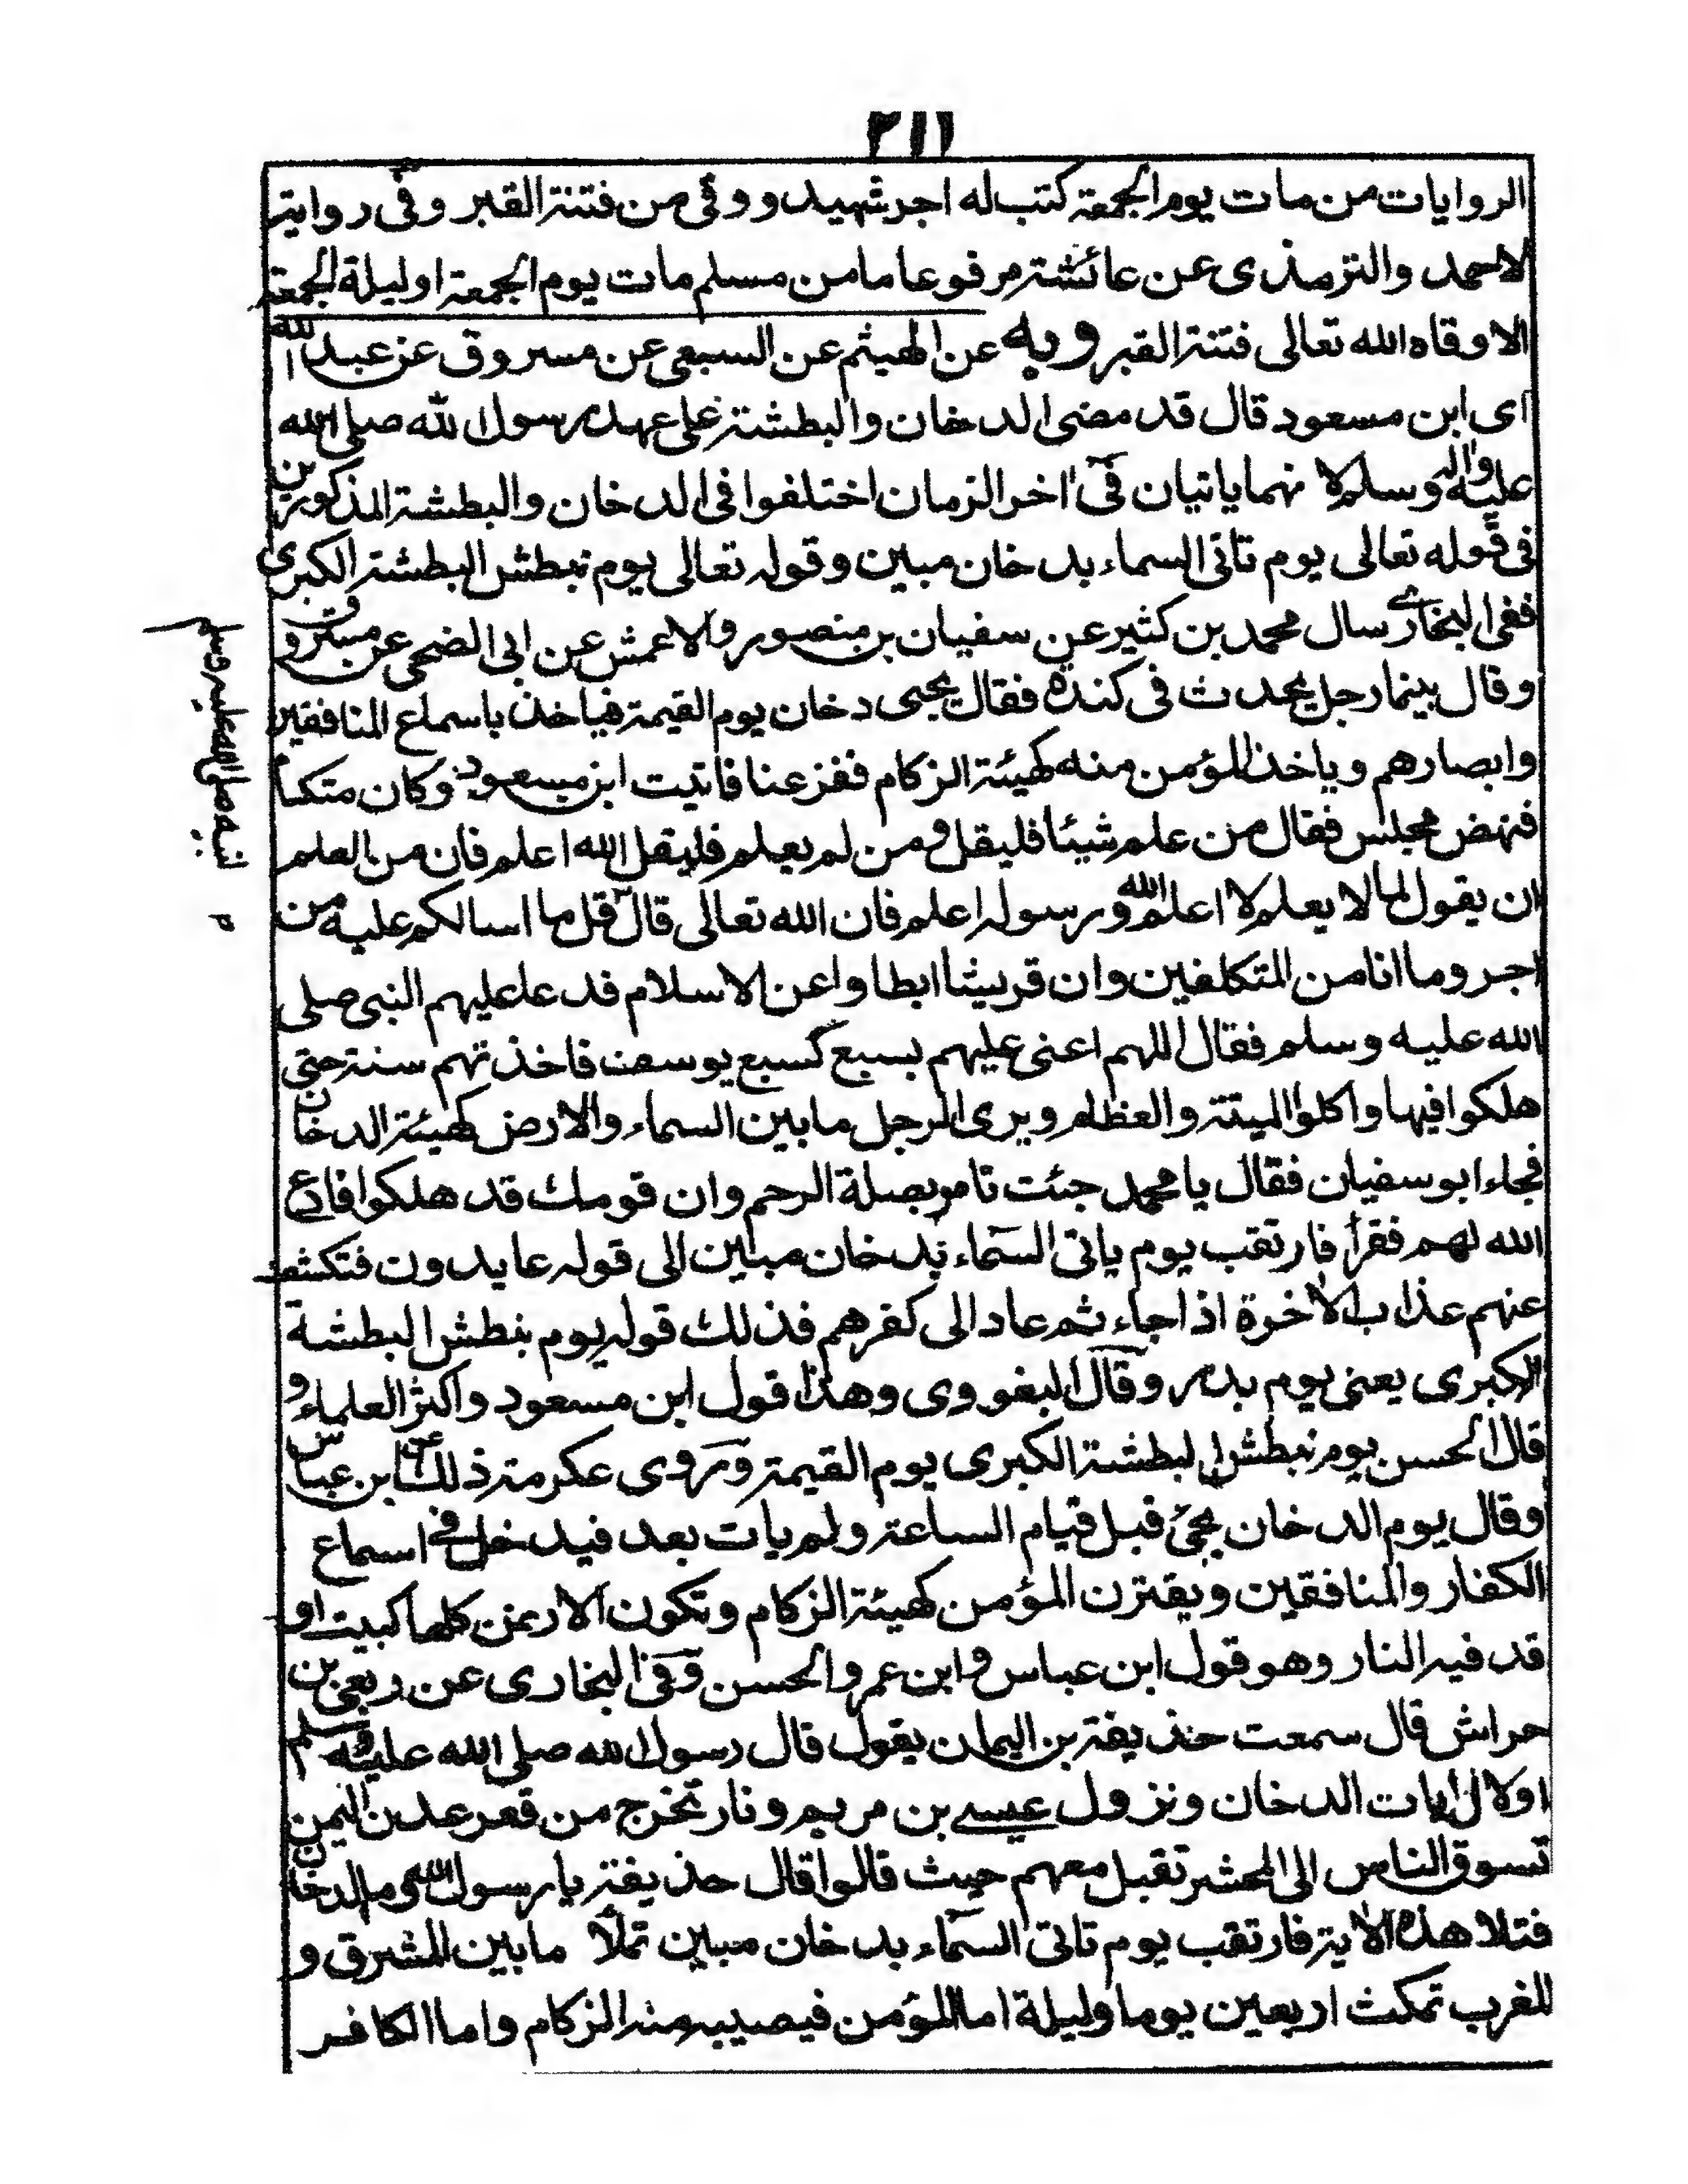 ٢١١
الروايات من مات يوم الجمعة كتب له اجر شهيد ووقي من فتنة القبر وفى رواية
لاحمد والترمذى عن عائشة مرفوعا ما من مسلم مات يوم الجمعة او ليلة الجمعة
الا وقاه الله تعالى فتنة القبر وبه عن الهيثم عن السبعى عن مسروق عن عبد الله
اى ابن مسعود قال قد مضى الدخان والبطشة على عهد رسول الله صلى الله
عليه واله وسلم لا نهما ياتيان فى اخر الزمان اختلفوا فى الدخان والبطشة المذكورين
فى قوله تعالى يوم تاتى السماء بدخان مبين وقوله تعالى يوم نبطش البطشة الكبرى
ففى البخارى سال محمد بن كثير عن سفيان بن منصور والاعمش عن ابى الضحى عن مسروق
وقال بينما رجل يحدث فى كندة فقال يجيى دخان يوم القيمة فياخذ باسماع المنافقين
وابصارهم وياخذ المؤمن منه كهيئة الزكام ففزعنا فاتيت ابن مسعود وكان متكأ
فنهض مجلس فقال من علم شيئا فليقل ومن لم يعلم فليقل الله اعلم فان من العلم
ان يقول لما لا يعلم لا اعلم الله ورسوله اعلم فان الله تعالى قال قل ما اسالكم عليه من
اجر وما انا من المتكلفين وان قريشا ابطاوا عن الاسلام فدعا عليهم النبى صلى
الله عليه وسلم فقال اللهم اعنى عليهم بسبع كسبع يوسف فاخذتهم سنة حتى
هلكوا فيها واكلوا الميتة والعظام ويرى الرجل ما بين السماء والارض كهيئة الدخان
فجاء ابو سفيان فقال يا محمد جئت تامر بصلة الرحم وان قومك قد هلكوا فادع
الله لهم فقرأ فارتقب يوم ياتى السماء بدخان مبين الى قوله عايدون فتكشف
عنهم عذاب الاخرة اذا جاء ثم عاد الى كفرهم فذلك قوله يوم بنطش البطشة
الكبرى يعنى يوم بدر وقال البغووى وهذا قول ابن مسعود واكثر العلماء و
قال الحسن يوم نبطش البطشة الكبرى يوم القيمة وروى عكرمة ذلك عن ابن عباس
وقال يوم الدخان يجئ قبل قيام الساعة ولم يات بعد فيدخل فى اسماع
الكفار والمنافقين ويقترن المؤمن كهيئة الزكام وتكون الارض كلها كبيت او
قد فيه النار وهو قول ابن عباس وابن عمر والحسن وفى البخارى عن ربعى بن
حراش قال سمعت حذيفة بن اليمان يقول قال رسول الله صلى الله عليه وسلم
اولا الايات الدخان ونزول عيسى بن مريم ونار تخرج من قعر عدن اليمن
تسوق الناس الى المحشر تقبل معهم حيث قالوا قال حذيفة يا رسول الله وما الدخان
فتلا هذه الاية فارتقب يوم تاتى السماء بدخان مبين تملأ ما بين المشرق و
المغرب تمكث اربعين يوما وليلة اما المؤمن فيصيبه منه الزكام واما الكافر
لنبيه صلى الله عليه وسلم
م